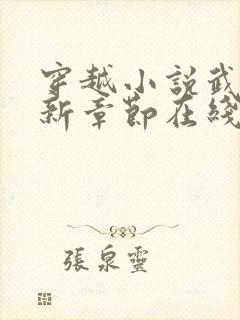 穿越小說武
新章節在綫
張泉靈